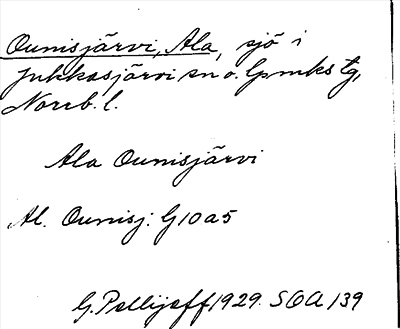 Ounisjärvi, Ala, sjö i
Jukkasjärvi sn o. lpmks tg,
Norrb. l.
Ala Ounisjärvi
Al. Ounisj. G10a5
G. Pellijeff 1929. SOA 139